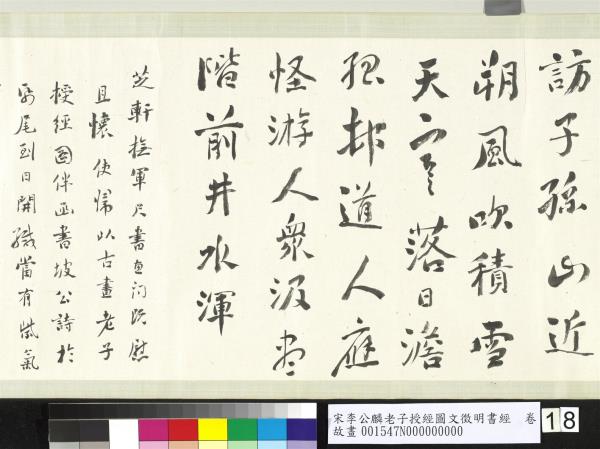 訪子孫山近
朔風吹積雪
天寒落日澹
孤邨道人應
怪游人衆汲盡
階前井水渾
芝軒撫軍尺書垂問慰
且懷使歸以古畫老子
授經圖伴函書坡公詩於
尾到日開緘當有紫氣
宋李公麟老子授經圖文徵明書經 卷
故畫001547N000000000
18